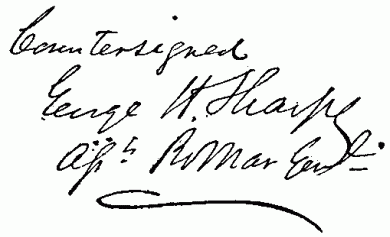 Countersigned
George H. Sharpe
Asst Pro Mar Genl.